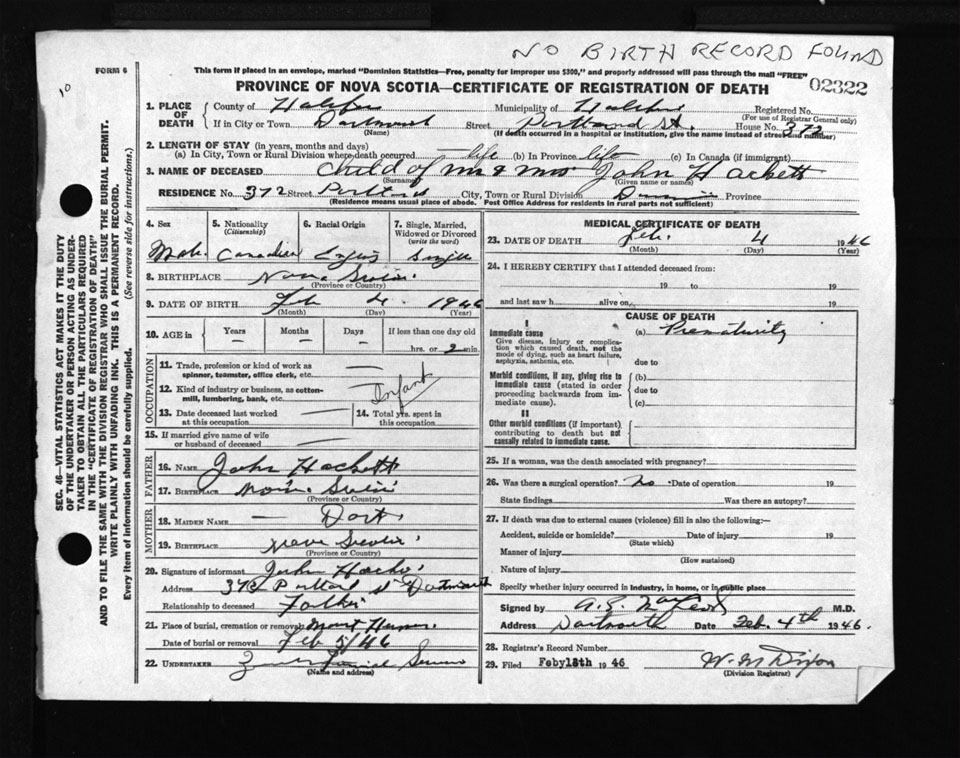 NO BIRTH RECORD FOUND
FORM 6
This form if placed in an envelope, marked "Dominion Statistics—Free, penalty for improper use $300," and properly addressed will pass through the mail "FREE"
10
PROVINCE OF NOVA SCOTIA—CERTIFICATE OF REGISTRATION OF DEATH
02322
1. PLACE OF DEATH County of Halifax Municipality of Halifax Registered No.
(For use of Registrar General only)
If in City or Town Dartmouth Street Portland St. House No. 372
(Name) (If death occurred in a hospital or institution, give the name instead of street and number)
2. LENGTH OF STAY (in years, months and days)
(a) In City, Town or Rural Division where death occurred life (b) In Province life (c) In Canada (if immigrant)
3. NAME OF DECEASED Child of Mr & Mrs John Hackett
(Surname) (Given name or names)
RESIDENCE No. 372 Street Portland City, Town or Rural Division Province
(Residence means usual place of abode. Post Office Address for residents in rural parts not sufficient)
4. Sex 5. Nationality (Citizenship) 6. Racial Origin 7. Single, Married, Widowed or Divorced (write the word)
Male Canadian Single
8. BIRTHPLACE Nova Scotia
(Province or Country)
9. DATE OF BIRTH Feb 4 1946
(Month) (Day) (Year)
10. AGE in Years Months Days If less than one day old
— — — hrs. or 2 min.
OCCUPATION
11. Trade, profession or kind of work as spinner, teamster, office clerk, etc. —
12. Kind of industry or business, as cotton-mill, lumbering, bank, etc. Infant
13. Date deceased last worked at this occupation — 14. Total yrs. spent in this occupation
15. If married give name of wife or husband of deceased —
FATHER
16. NAME John Hackett
17. BIRTHPLACE Nova Scotia
(Province or Country)
MOTHER
18. MAIDEN NAME — Dort
19. BIRTHPLACE Nova Scotia
(Province or Country)
20. Signature of informant John Hackett
Address 372 Portland St Dartmouth
Relationship to deceased Father
21. Place of burial, cremation or removal Mount Hermon
Date of burial or removal Feb 5/46
22. UNDERTAKER Funeral Service
(Name and address)
MEDICAL CERTIFICATE OF DEATH
23. DATE OF DEATH Feb. 4 1946
(Month) (Day) (Year)
24. I HEREBY CERTIFY that I attended deceased from:
19 to 19
and last saw h alive on 19
CAUSE OF DEATH
I
Immediate cause (a) Prematurity
Give disease, injury or complication which caused death, not the mode of dying, such as heart failure, asphyxia, asthenia, etc.
due to
Morbid conditions, if any, giving rise to immediate cause (stated in order proceeding backwards from immediate cause).
(b)
due to
(c)
II
Other morbid conditions (if important) contributing to death but not causally related to immediate cause.
25. If a woman, was the death associated with pregnancy?
26. Was there a surgical operation? No. Date of operation 19
State findings Was there an autopsy?
27. If death was due to external causes (violence) fill in also the following:—
Accident, suicide or homicide? Date of injury 19
(State which)
Manner of injury
(How sustained)
Nature of injury
Specify whether injury occurred in industry, in home, or in public place
Signed by M.D.
Address Dartmouth Date Feb. 4th 1946.
28. Registrar's Record Number
29. Filed Feby 18th 1946 W. M. Dixon
(Division Registrar)
SEC. 46—VITAL STATISTICS ACT MAKES IT THE DUTY
OF THE UNDERTAKER OR PERSON ACTING AS UNDER-
TAKER TO OBTAIN ALL THE PARTICULARS REQUIRED
IN THE "CERTIFICATE OF REGISTRATION OF DEATH"
AND TO FILE THE SAME WITH THE DIVISION REGISTRAR WHO SHALL ISSUE THE BURIAL PERMIT.
WRITE PLAINLY WITH UNFADING INK. THIS IS A PERMANENT RECORD.
Every item of information should be carefully supplied. (See reverse side for instructions.)